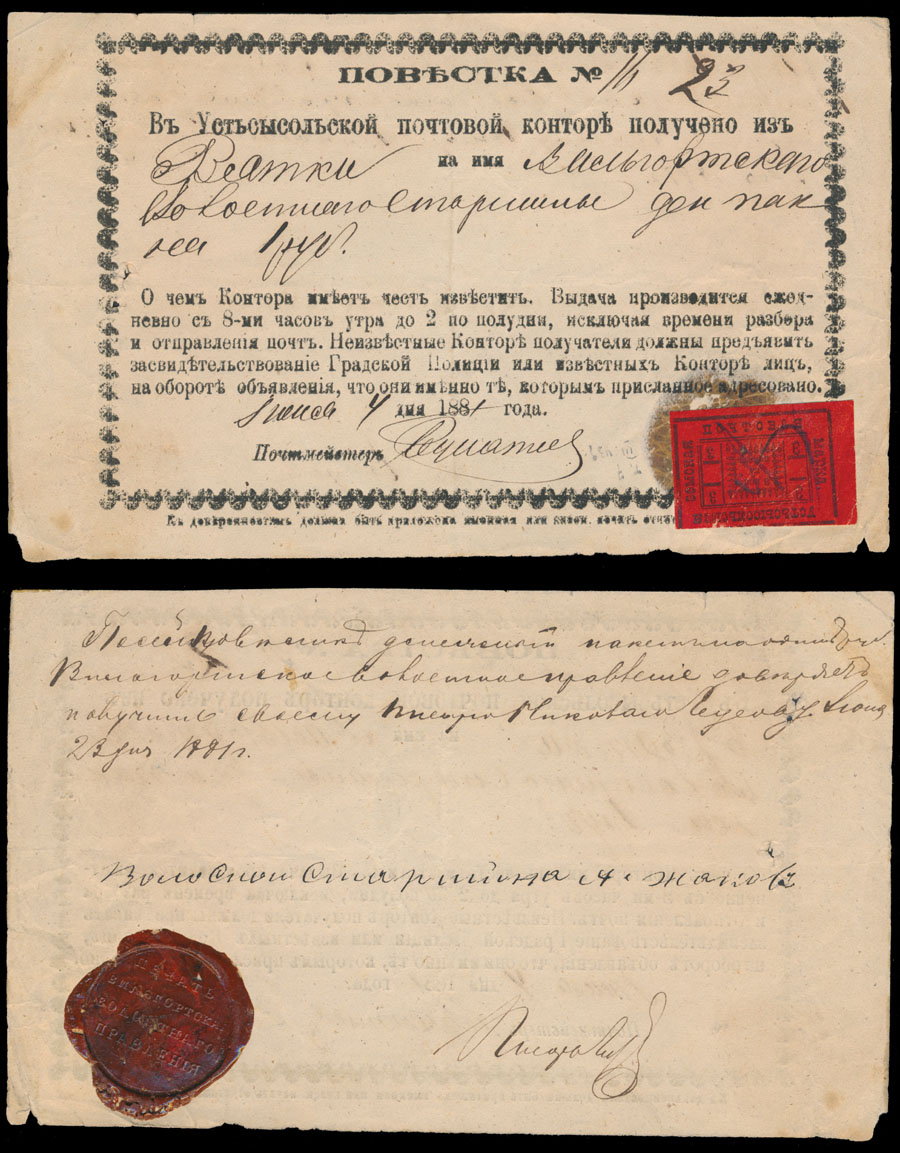 ПОВѢСТКА № 16 23
Въ Устьсысольской почтовой конторѣ получено изъ
Вятки на имя Вильгортскаго
Волостнаго Старшины ден пак
на 1 руб.
О чемъ Контора имѣетъ честь извѣстить. Выдача производится еже-
невно съ 8-ми часовъ утра до 2 по полудни, исключая времени разбора
и отправленія почтъ. Неизвѣстные Конторѣ получатели должны предъявить
засвидѣтельствованіе Градской Полиціи или извѣстныхъ Конторѣ лицъ,
на оборотѣ объявленія, что они именно тѣ, которымъ присланное адресовано.
4 дня 1881 года.
Почтмейстеръ
Къ довѣренностямъ должна быть приложена именная или казен. печать
МАРКА
УСТЬСЫСОЛЬСКОЙ
ЗЕМСКОЙ
денежный пакетъ на один руб.
Вильгортское волостное правленіе довѣряетъ
получить своему Писарю Николаю
23 дня 1881 г.
Волосной Старшина А. Жаковъ
Писарь
ПЕЧАТЬ
ВИЛЬГОРТСКА
ВОЛОСТНАГО
ПРАВЛЕНІЯ